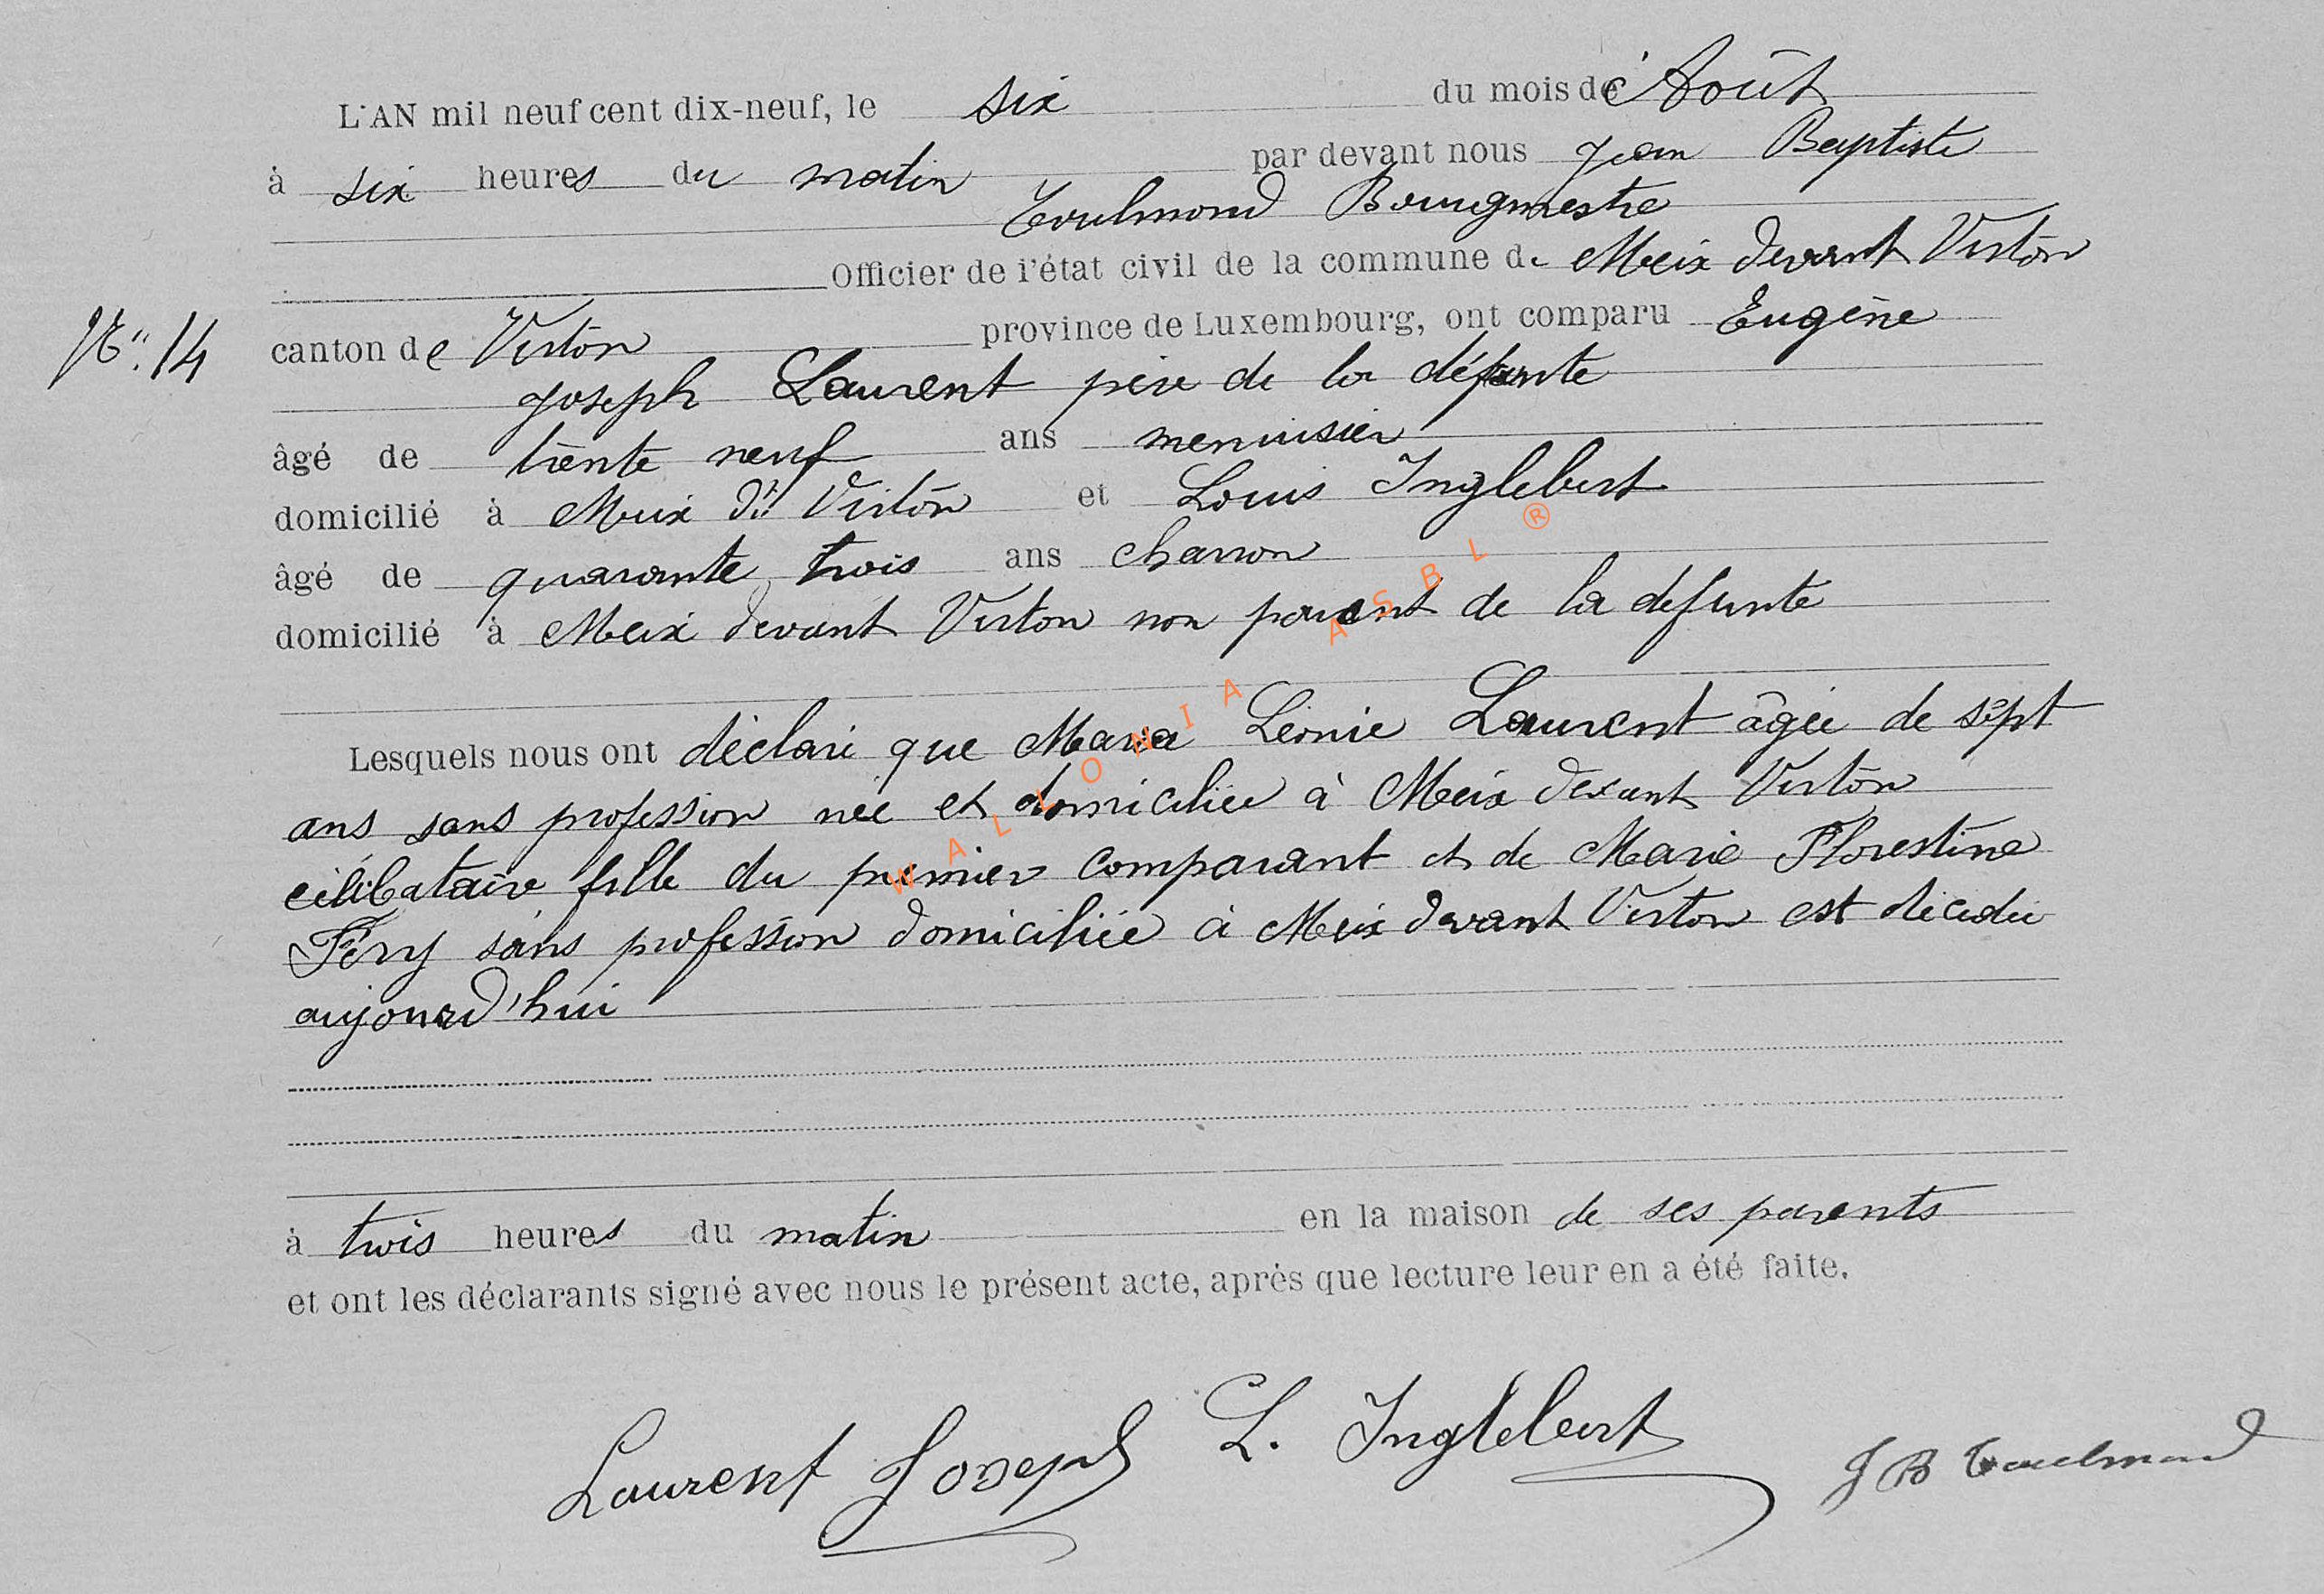 L'AN mil neuf cent dix-neuf, le six du mois d'Août
à six heures du matin par devant nous Jean Baptiste
Toulmond Bourgmestre
Officier de l'état civil de la commune de Meix devant Virton
N° 14
canton de Virton province de Luxembourg, ont comparu Eugène
Joseph Laurent père de la défunte
âgé de trente neuf ans menuisier
domicilié à Meix dt Virton et Louis Inglebert
âgé de quarante trois ans charron
domicilié à Meix devant Virton non parent de la defunte
Lesquels nous ont déclaré que Maria Léonie Laurent âgée de sept
ans sans profession née et domiciliée à Meix devant Virton
célibataire fille du premier comparant et de Marie Florestine
Féry sans profession domiciliée à Meix devant Virton est décédée
aujourd'hui
à trois heures du matin en la maison de ses parents
et ont les déclarants signé avec nous le présent acte, après que lecture leur en a été faite.
Laurent Joseph L. Inglebert J B Toulmond
WALLONIA ASBL ®